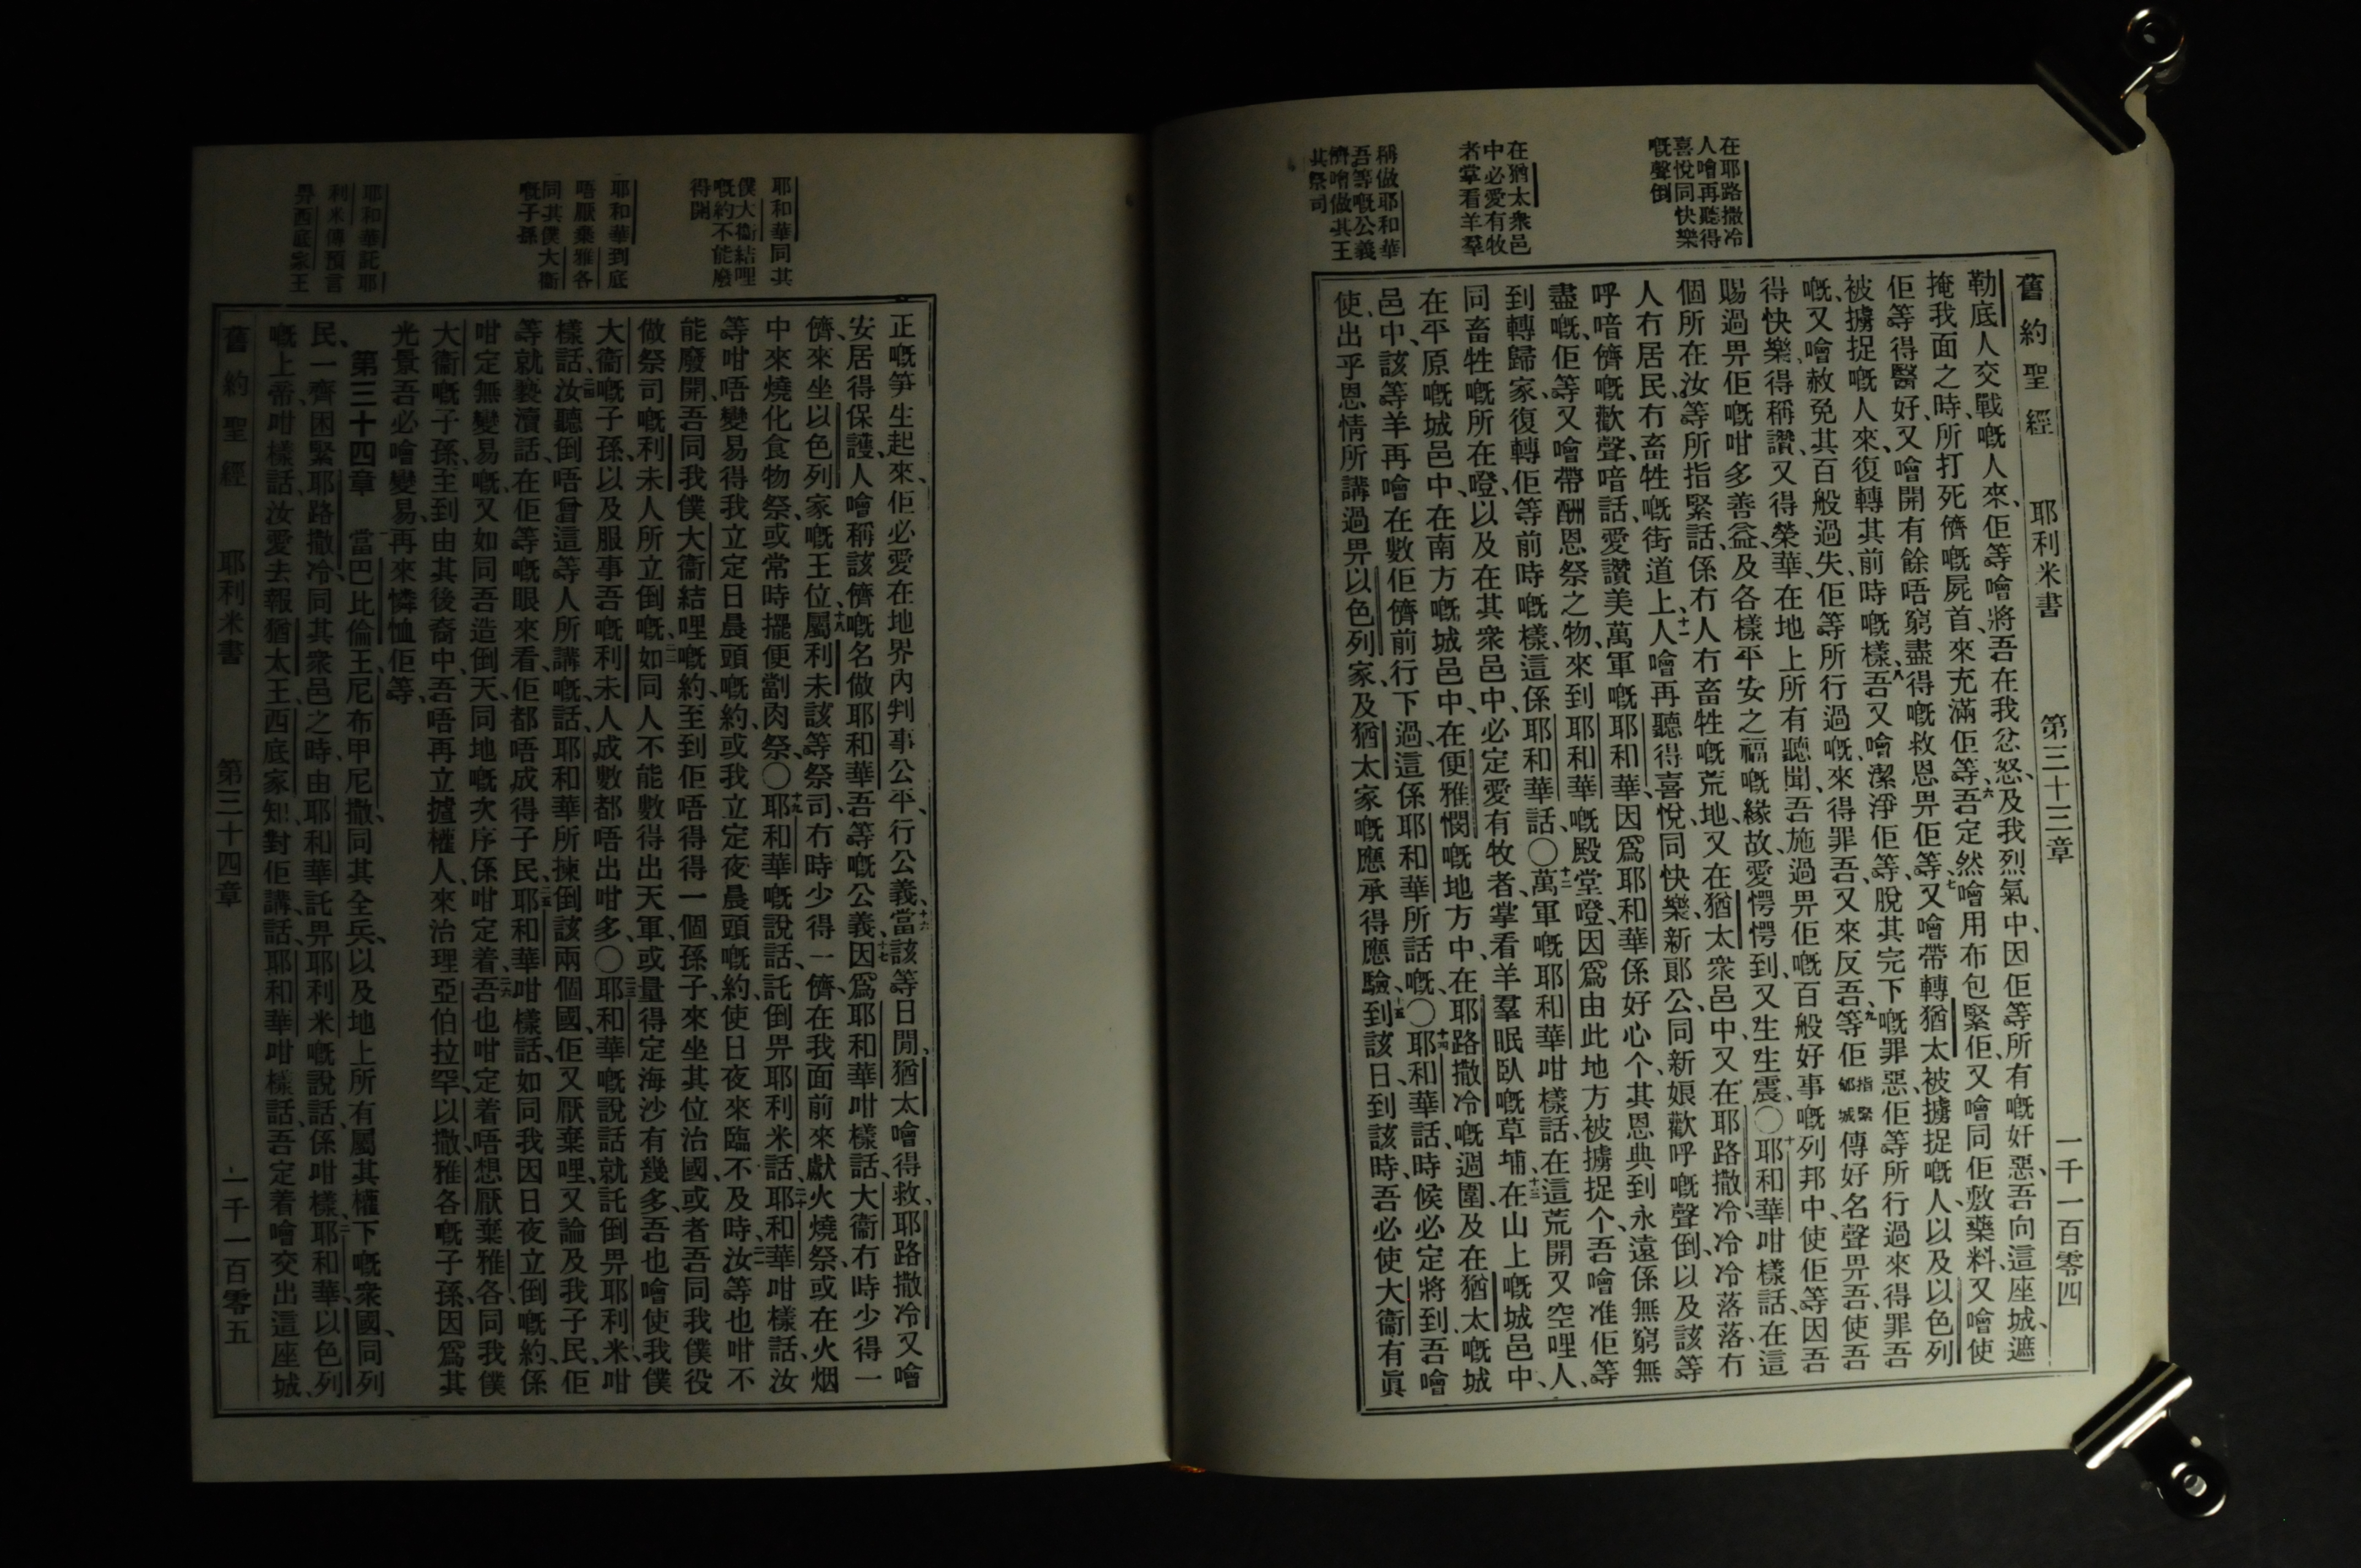 在耶路撒冷
人噲再聽得
喜悅同快樂
嘅聲倒
在猶太衆邑
中必愛有牧
者掌看羊羣
稱做耶和華
吾等嘅公義
儕噲做其王
其祭司
舊約聖經 耶利米書 第三十三章 一千一百零四
勒底人交戰嘅人來、佢等噲將吾在我忿怒、及我烈氣中、因佢等所有嘅奸惡、吾向這座城、遮
掩我面之時、所打死儕嘅屍首、來充滿佢等、六吾定然噲用布包緊佢、又噲同佢敷藥料、又噲使
佢等得醫好、又噲開有餘唔窮盡得嘅救恩畀佢等、七又噲帶轉猶太被擄捉嘅人、以及以色列
被擄捉嘅人來、復轉其前時嘅樣、八吾又噲潔淨佢等、脫其完下嘅罪惡、佢等所行過來得罪吾
嘅、又噲赦免其百般過失、佢等所行過嘅、來得罪吾、又來反吾、九等佢指緊郇城傳好名聲畀吾、使吾
得快樂、得稱讚、又得榮華、在地上所有聽聞吾施過畀佢嘅百般好事嘅列邦中、使佢等因吾
賜過畀佢嘅咁多善益、及各樣平安之福嘅緣故、愛愕愕到、又生生震、〇十耶和華咁樣話、在這
個所在、汝等所指緊話、係冇人冇畜牲嘅荒地、又在猶太衆邑中、又在耶路撒冷、冷冷落落、冇
人冇居民、冇畜牲嘅街道上、十一人噲再聽得喜悅、同快樂、新郞公同新娘歡呼嘅聲倒、以及該等
呼喑儕嘅歡聲、喑話、愛讚美萬軍嘅耶和華、因爲耶和華係好心个、其恩典到永遠係無窮無
盡嘅、佢等又噲帶酬恩祭之物、來到耶和華嘅殿堂㗳、因爲由此地方被擄捉个、吾噲准佢等
到轉歸家、復轉佢等前時嘅樣、這係耶和華話、〇十二萬軍嘅耶和華咁樣話、在這荒開又空哩、人、
同畜牲嘅所在㗳、以及在其衆邑中、必定愛有牧者、掌看羊羣眠臥嘅草埔、十三在山上嘅城邑中、
在平原嘅城邑中、在南方嘅城邑中、在便雅憫嘅地方中、在耶路撒冷嘅週圍、及在猶太嘅城
邑中、該等羊再噲在數佢儕前行下過、這係耶和華所話嘅、〇十四耶和華話、時候必定將到、吾噲
使、出乎恩情所講過畀以色列家、及猶太家嘅應承得應驗、十五到該日、到該時、吾必使大衞有眞
耶和華同其
僕大衞結哩
嘅約不能廢
得開
耶和華到底
唔厭棄雅各
同其僕大衞
嘅子孫
耶和華託耶
利米傳預言
畀西底家王
正嘅笋生起來、佢必愛在地界內判事公平、行公義、十六當該等日間、猶太噲得救、耶路撒冷又噲
安居得保護、人噲稱該儕嘅名做耶和華吾等嘅公義、十七因爲耶和華咁樣話、大衞冇時少得一
儕、來坐以色列家嘅王位、十八屬利未該等祭司冇時少得一儕、在我面前來獻火燒祭、或在火烟
中來燒化食物祭、或常時擺便劏肉祭、〇十九耶和華嘅說話、託倒畀耶利米話、二十耶和華咁樣話、汝
等咁唔變易得我立定日晨頭嘅約、或我立定夜晨頭嘅約、使日夜來臨不及時、二一汝等也咁不
能廢開吾同我僕大衞結哩嘅約、至到佢唔得得一個孫子、來坐其位治國、或者吾同我僕役
做祭司嘅利未人所立倒嘅、二二如同人不能數得出天軍、或量得定海沙有幾多、吾也噲使我僕
大衞嘅子孫、以及服事吾嘅利未人、成數都唔出咁多、〇二三耶和華嘅說話、就託倒畀耶利米、咁
樣話、二四汝聽倒唔曾這等人所講嘅話、耶和華所揀倒該兩個國、佢又厭棄哩、又論及我子民、佢
等就褻瀆話、在佢等嘅眼來看、佢都唔成得子民、二五耶和華咁樣話、如同我因日夜立倒嘅約、係
咁定無變易嘅、又如同吾造倒天、同地嘅次序係咁定着、二六吾也咁定着唔想厭棄雅各、同我僕
大衞嘅子孫、至到由其後裔中、吾唔再立攎權人、來治理亞伯拉罕、以撒、雅各嘅子孫、因爲其
光景吾必噲變易、再來憐恤佢等、
第三十四章 一當巴比倫王、尼布甲尼撒、同其全兵、以及地上所有屬其權下嘅衆國、同列
民、一齊困緊耶路撒冷、同其衆邑之時、由耶和華託畀耶利米嘅說話、係咁樣、二耶和華、以色列
嘅上帝、咁樣話、汝愛去報猶太王、西底家知、對佢講話、耶和華咁樣話、吾定着噲交出這座城、
舊約聖經 耶利米書 第三十四章 一千一百零五